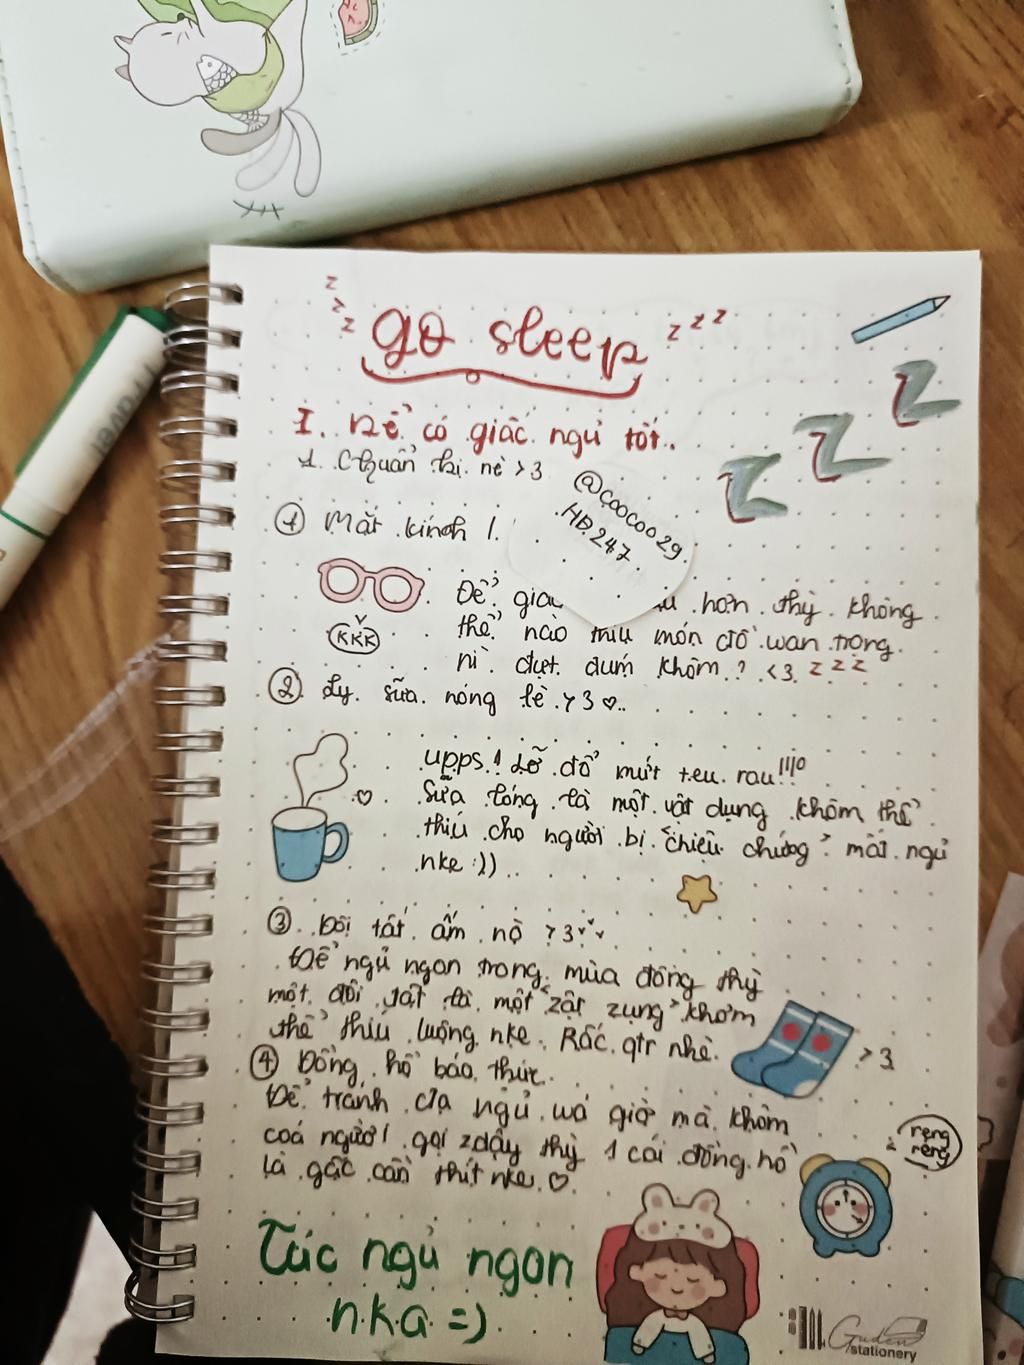 z z z go sleep z z z
I. Để có giấc ngủ tốt..
1. Chuẩn bị nè >3
@coocoo29.
HD.247
① Mắt kính 1.
Để giấc hơn thỳ không
KKK
thể nào thíu món đồ wan trong
nì đựt dum khôm? <3 z z z
② Ly sữa nóng lè >3 ♡..
upps! Lỡ đổ mứt teu rau!!!!
Sữa lóng là một vật dụng khôm thể
thiú cho người bị "chiệu chứng" mất ngủ
nke :))
③ Đôi tất ấm nộ >3
Để ngủ ngon trong mùa đông thỳ
một đôi tất là một "zật zụng" khơm
thể thiú luộng nke. Rắc qtr nhè.
>3
④ Đồng hồ báo thức..
Để tránh cta ngủ wá giờ mà khôm
coá người gọi zdậy thỳ 1 cái đồng hồ
reng
reng
là gấc cần thít nke ♡.
Túc ngủ ngon
nka =)
Guden
stationery
Z Z Z